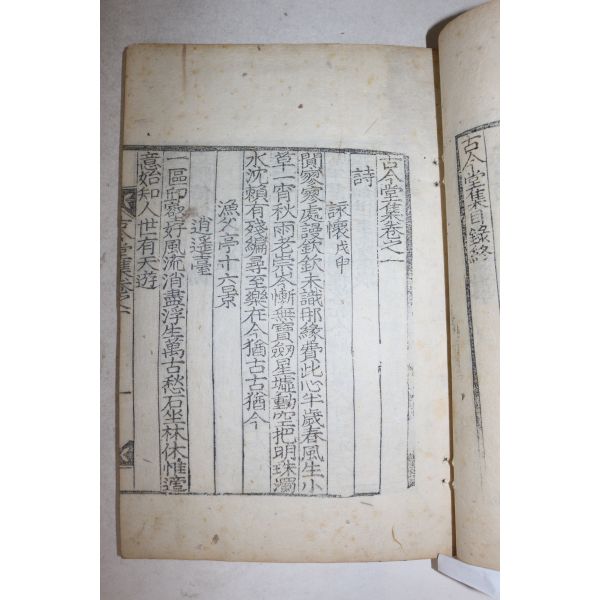 古今堂集目錄終
古今堂集卷之一
詩
詠懷戊申
閴寥寥處謾欽欽未識那緣費此心半歲春風生小
草一宵秋雨老崇今慚無寶劒星墟動空把明珠濁
水沈賴有殘編尋至樂在今猶古古猶今
漁父亭十六景
逍遥臺
一區卬窮好風流消盡浮生萬古愁石坐林休惟意
意始知人世有天遊
古今堂集卷之一
一